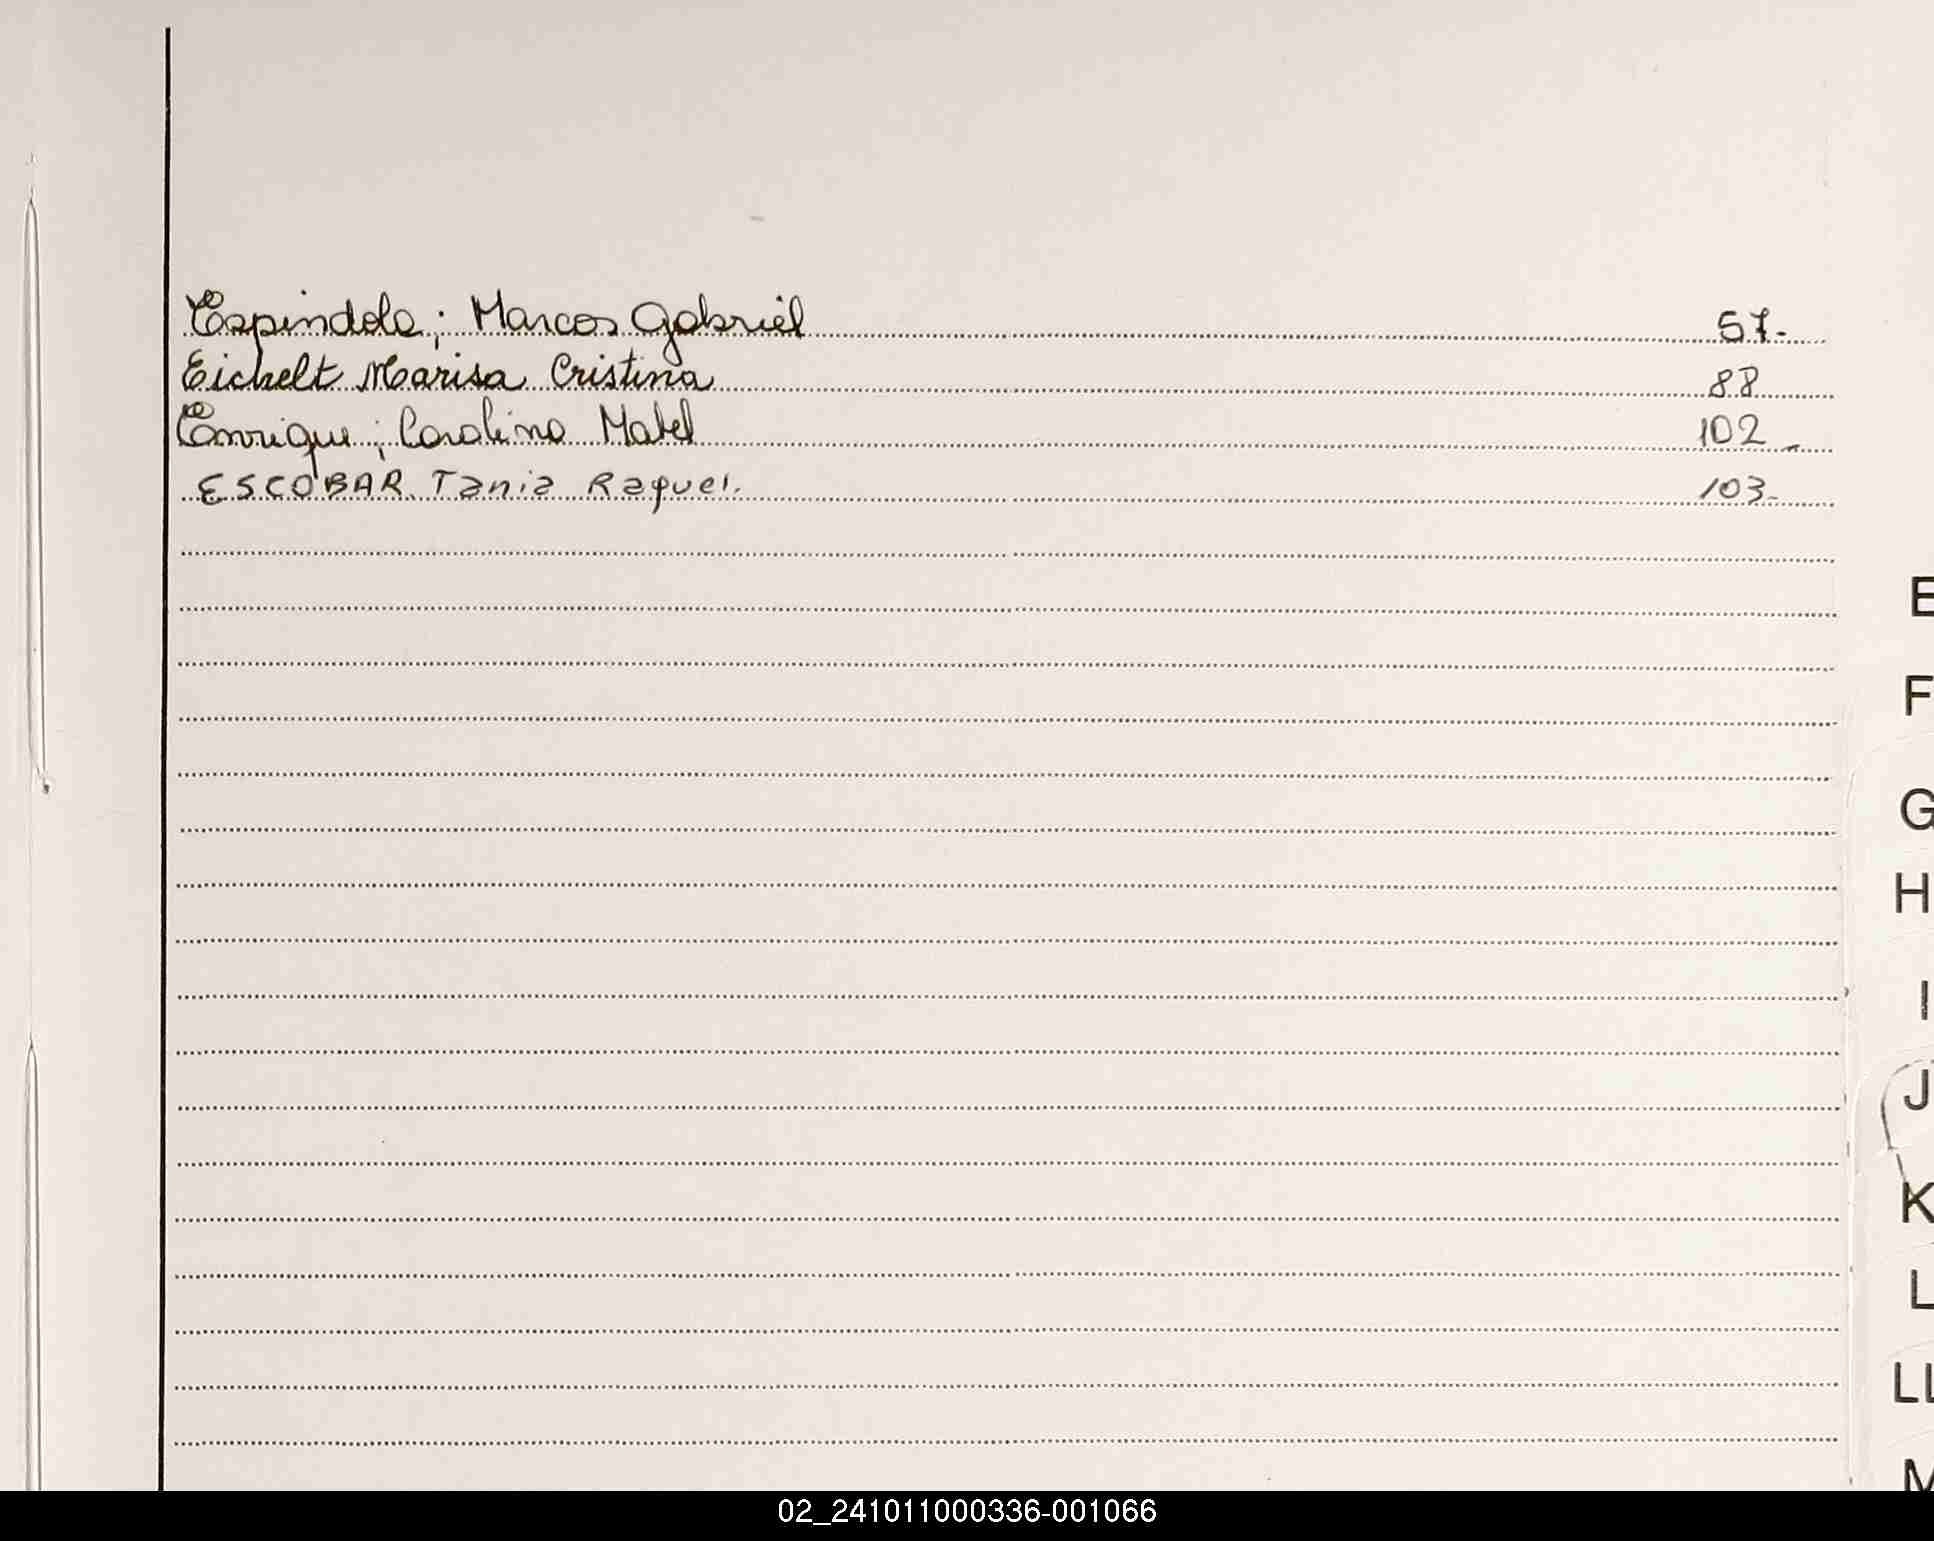 Espindola; Marcos Gabriel 57-
Eichelt Marisa Cristina 88
Enrique; Carolina Mabel 102-
ESCOBAR Tania Raquel. 103-
E
F
G
H
I
J
K
L
LL
M
02_241011000336-001066